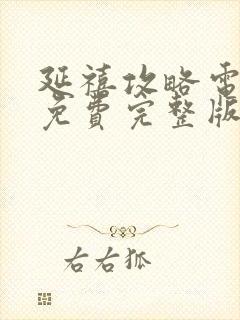 延禧攻略電
免費完整版
右右狐